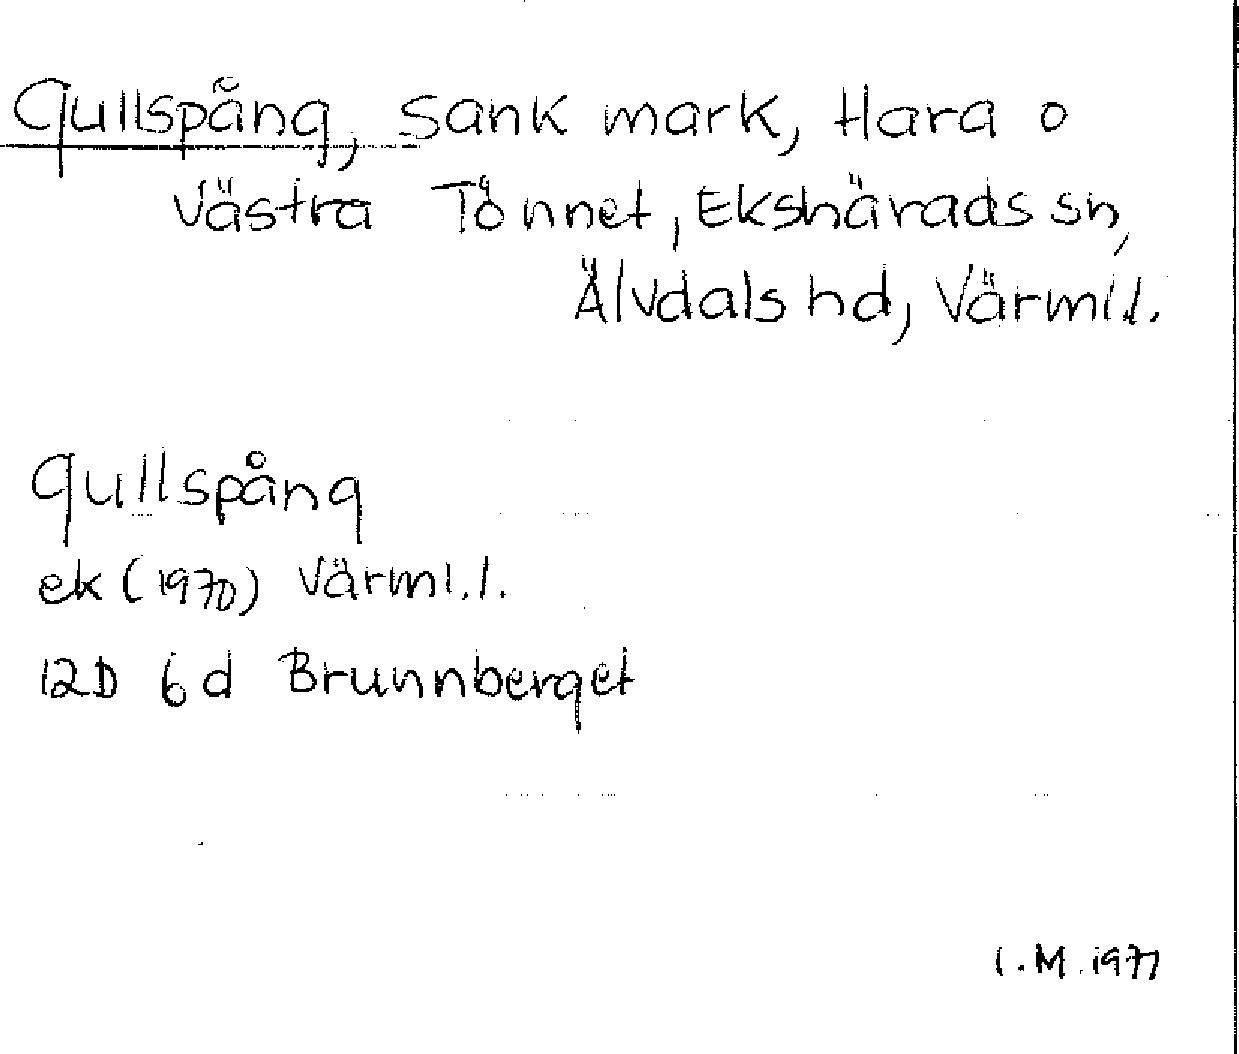 Gullspång, sank mark, Hara o
Västra Tönnet, Ekshärads sn,
Älvdals hd, Värml.l.
gullspång
ek (1970) Värml.l.
12D 6d Brunnberget
I.M. 1977